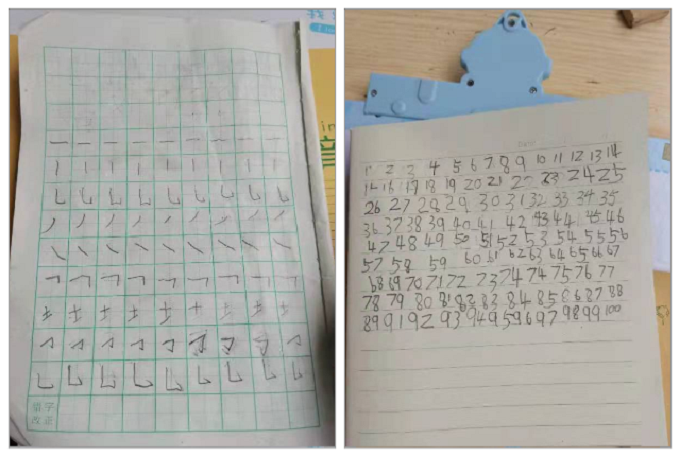 一 一 一 一 一 一 一 一
丨 丨 丨 丨 丨 丨 丨 丨
ㄴ ㄴ ㄴ ㄴ ㄴ ㄴ ㄴ ㄴ
丿 丿 丿 丿 丿 丿 丿 丿
㇏ ㇏ ㇏ ㇏ ㇏ ㇏ ㇏ ㇏
㇕ ㇕ ㇕ ㇕ ㇕ ㇕ ㇕ ㇕
错字
改正
1 2 3 4 5 6 7 8 9 10 11 12 13 14
16 17 18 19 20 21 22 23 24 25
26 27 28 29 30 31 32 33 34 35
36 37 38 39 40 41 42 43 44 45 46
47 48 49 50 51 52 53 54 55 56
57 58 59 60 61 62 63 64 65 66 67
68 69 70 71 72 73 74 74 75 76 77
78 79 80 81 82 83 84 85 86 87 88
89 91 92 93 94 95 96 97 98 99 100